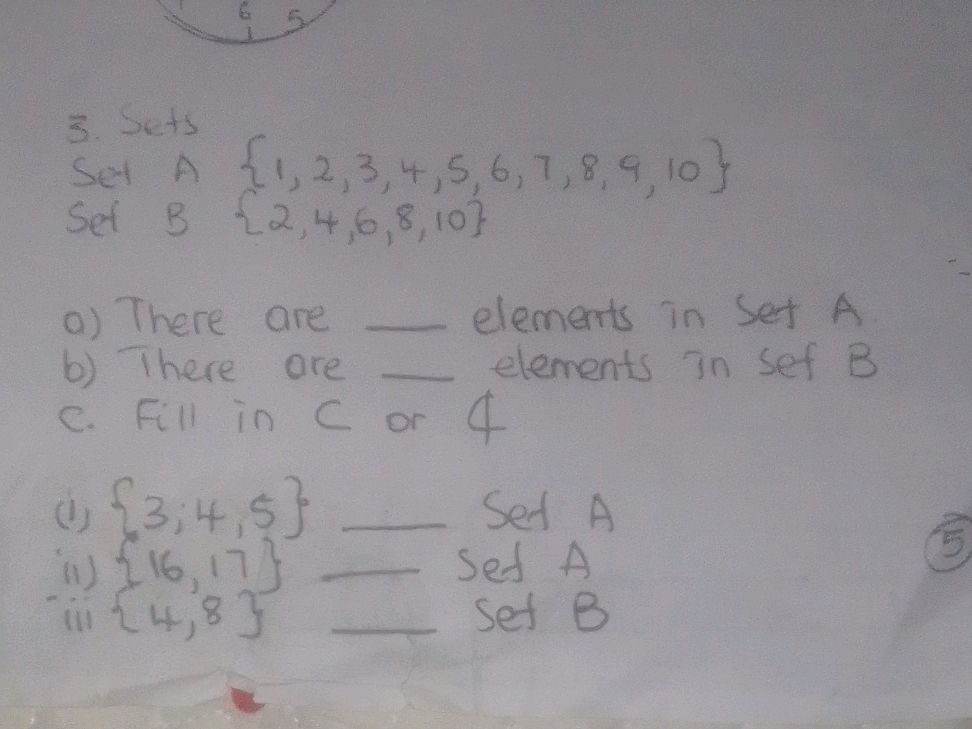 6 5
3. Sets
Set A {1, 2, 3, 4, 5, 6, 7, 8, 9, 10}
Set B {2, 4, 6, 8, 10}
a) There are ___ elements in Set A
b) There are ___ elements in set B
C. Fill in ⊂ or ⊄
(i) {3; 4, 5} ___ Set A
ii) {16, 17} ___ Set A
iii {4, 8} ___ Set B
5